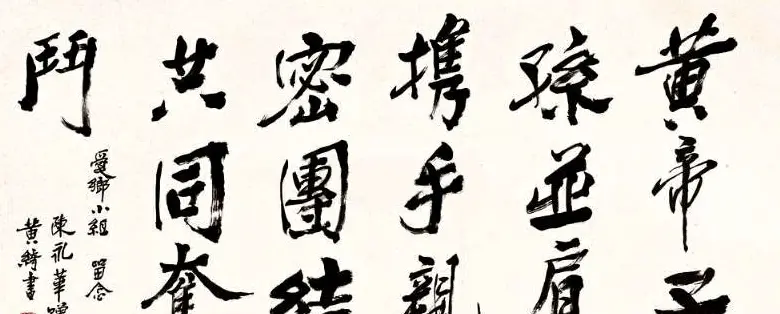 黄帝子
孫並肩
携手親
密團結
共同奮
鬥
愛鄉小組 留念
陳礼華贈
黄綺書